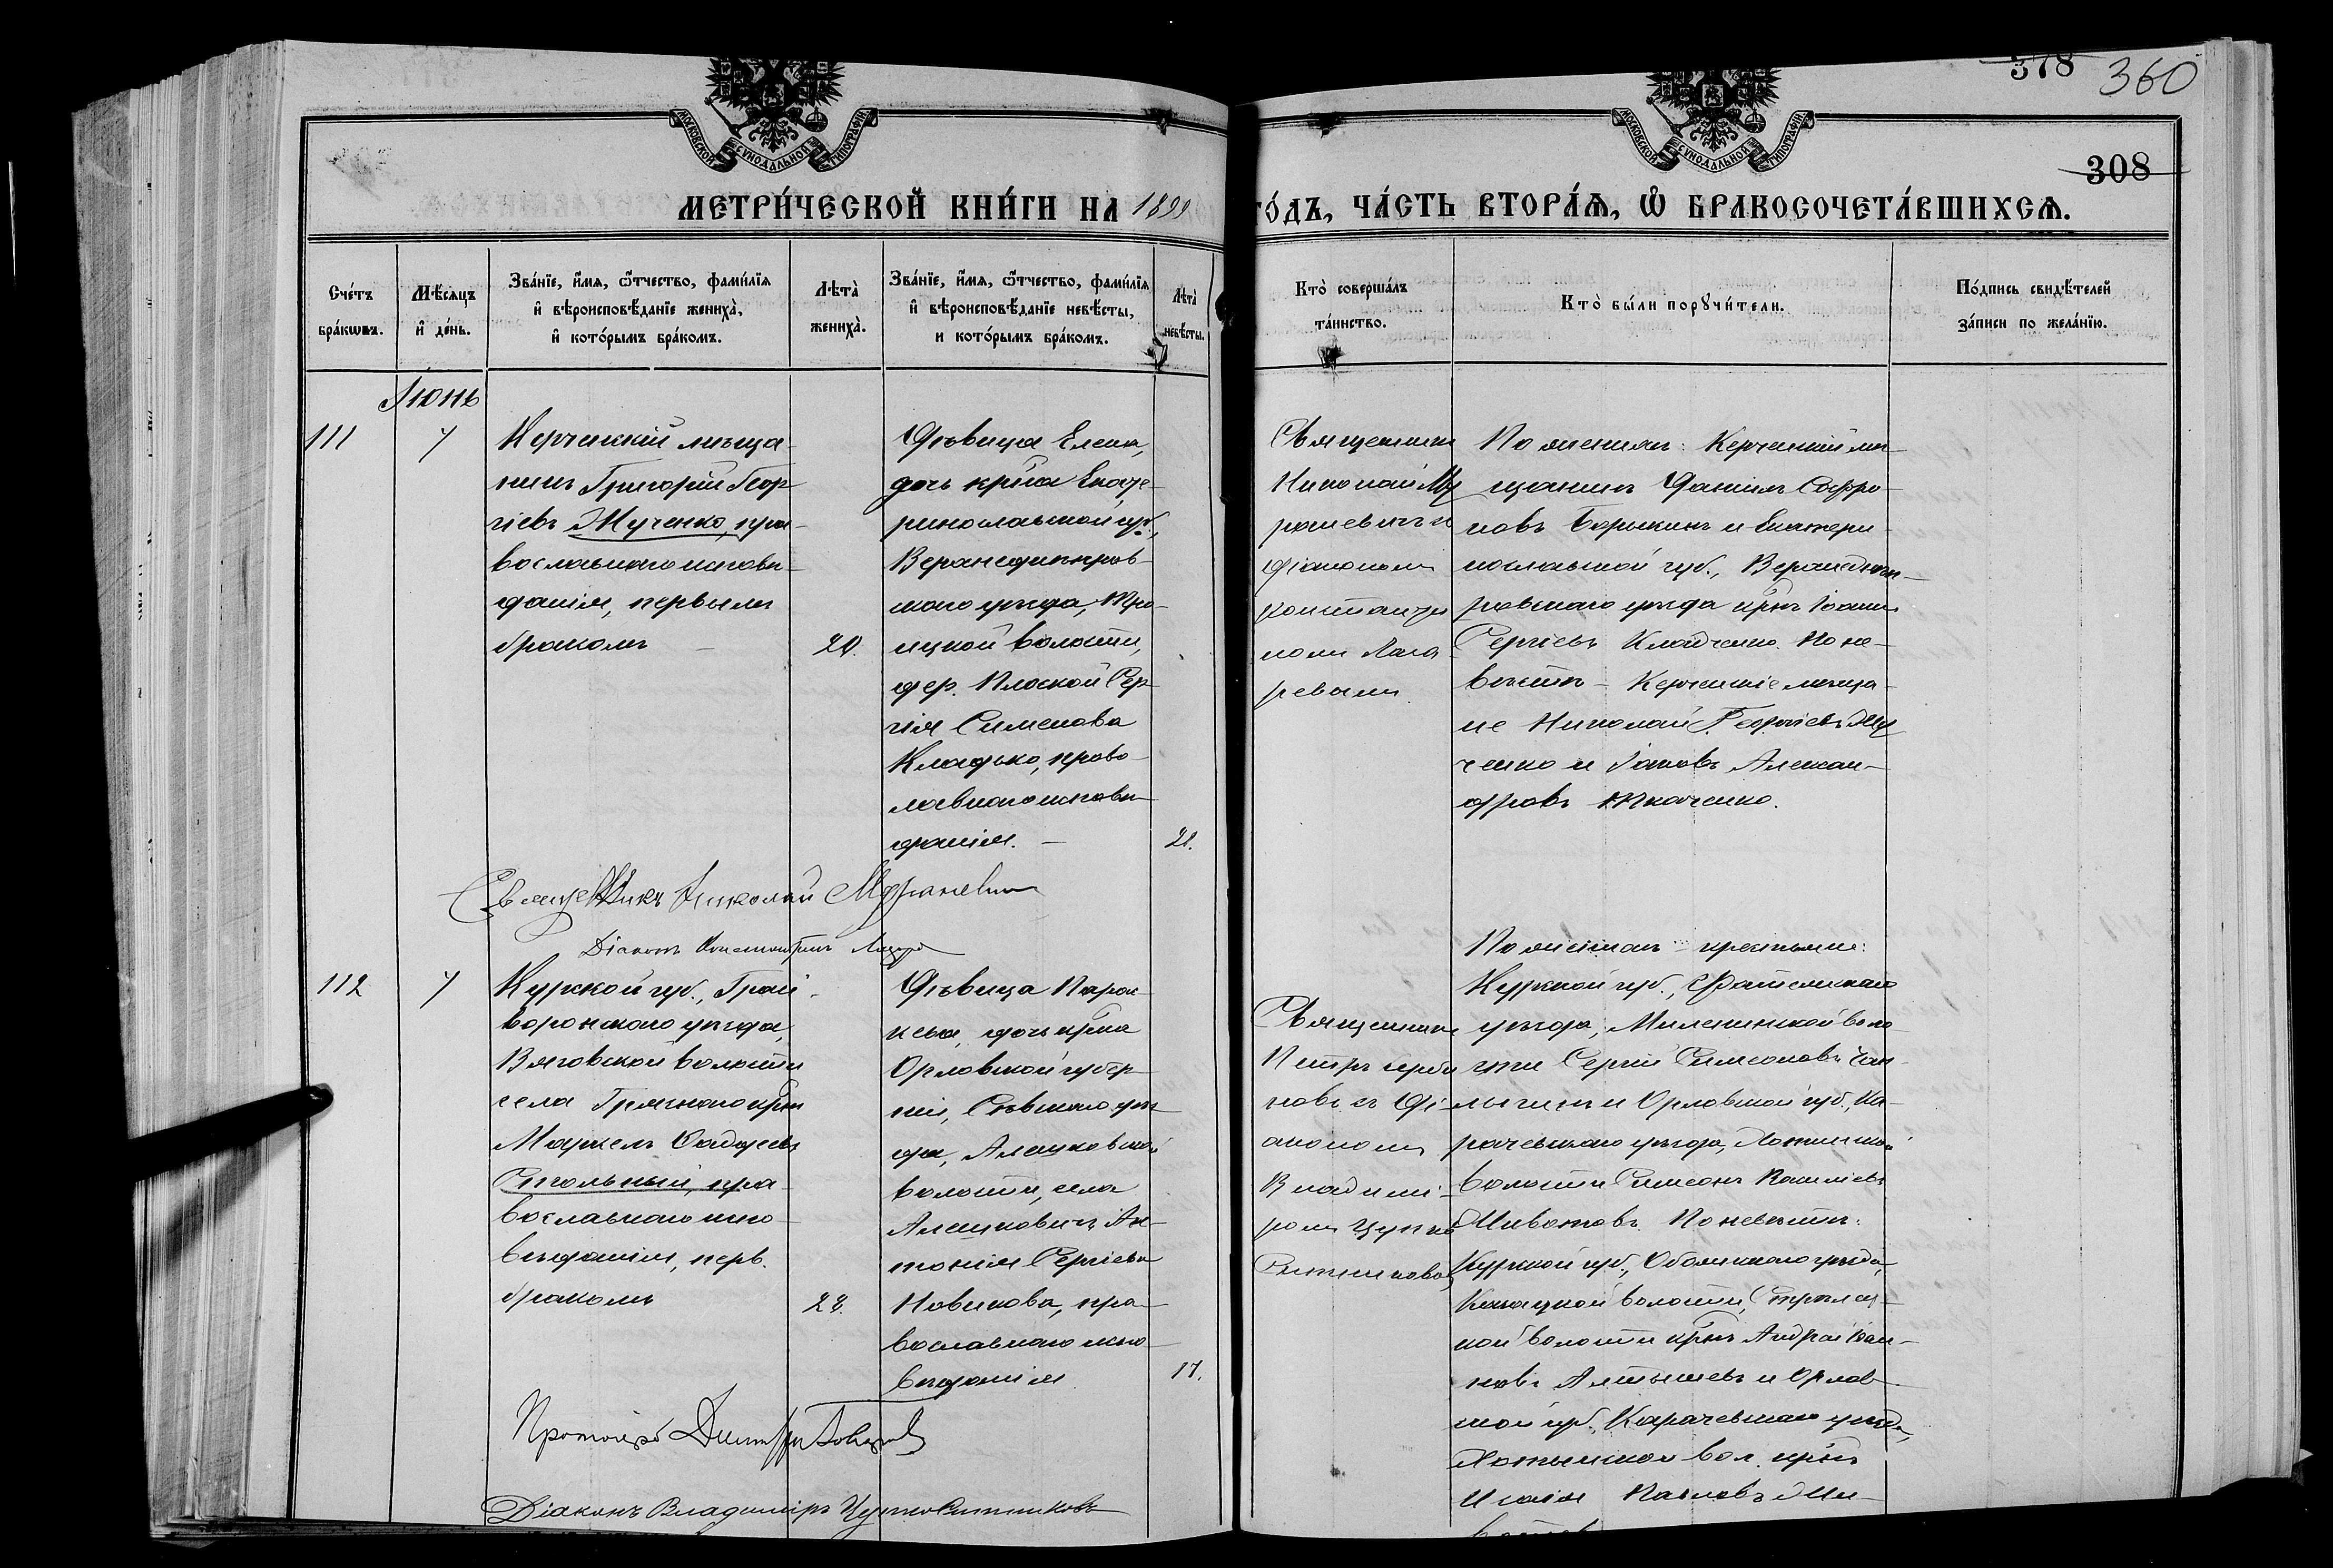 378 360
308
МОСКОВСКОЙ СѴНОДАЛЬНОЙ ТИПОГРАФІИ
МОСКОВСКОЙ СѴНОДАЛЬНОЙ ТИПОГРАФІИ
МЕТРИ́ЧЕСКОЙ КНИ́ГИ НА 1899
ГО́ДЪ, ЧА́СТЬ ВТОРА́Я, Ѡ БРАКОСОЧЕТА́ВШИХСЯ.
Сче́тъ
бра́кѡвъ.
Мѣ́сяцъ
и де́нь.
Зва́нїе, и́мя, ѻ́тчество, фами́лїя
и вѣроисповѣ́данїе жениха̀,
и кото́рымъ бра́комъ.
Лѣта̀
жениха̀.
Зва́нїе, и́мя, ѻ́тчество, фами́лїя
и вѣроисповѣ́данїе невѣ́сты,
и кото́рымъ бра́комъ.
Лѣта̀
невѣ́сты.
Кто̀ соверша́лъ
та́инство.
Кто̀ бы́ли порꙋчи́тели.
По́дпись свидѣ́телей
за́писи по жела́нїю.
Іюнь
111
7
Керченскій мѣща-
нинъ Григорій Геор-
гіевъ Мученко, пра-
вославнаго исповѣ-
данія, первымъ
бракомъ
20.
Дѣвица Елена,
дочь кр-на Екате-
ринославской губ.,
Верхнеднѣпров-
скаго уѣзда, Тро-
ицкой волости,
дер. Плоской Сер-
гія Сименова
Кладько, право-
славнаго исповѣ-
данія. —
21.
Священникъ
Николай Му
рашевичъ съ
діакономъ
Константи
номъ Лаза-
ревымъ.
По женихѣ: Керченскій мѣ-
щанинъ Даніилъ Софро-
новъ Борыкинъ и Екатери-
нославской губ., Верхнеднѣп-
ровскаго уѣзда кр-нъ Іоаннъ
Сергіевъ Кладченко. По не-
вѣстѣ — Керченскіе мѣща-
не Николай Георгіевъ Му
ченко и Іаковъ Алексан-
дровъ Ткаченко.
Священникъ Николай Мурашевичъ
Діаконъ Константинъ Лазаре
112
7
Курской губ., Грай-
воронскаго уѣзда,
Вязовской волости
села Грязнаго кр-нъ
Маркелъ Фаддеевъ
Стольный, пра-
вославнаго испо-
вѣданія, перв.
бракомъ
23.
Дѣвица Парас-
кева, дочь кр-на
Орловской губер-
ніи, Сѣвскаго уѣз-
да, Алешковской
волости, села
Алешковичъ Ан-
тонія Сергіева
Новикова, пра-
вославнаго испо-
вѣданія
17.
Священникъ
Петръ Серби
новъ съ Ді-
акономъ
Владимі-
ромъ Цупко
Ситниковымъ
По женихѣ — крестьяне:
Курской губ., Фатежскаго
уѣзда, Миленинской воло
сти Сергій Симеоновъ
и Орловской губ., Ка-
рачевскаго уѣзда, Хотынской
волости Симеонъ Василіевъ
Животовъ. По невѣстѣ:
Курской губ., Обоянскаго уѣзда,
Казацкой волости, Стрѣлец-
кой волости кр-нъ Андрей Іоан-
новъ Алтышевъ и Орлов-
ской губ., Карачевскаго уѣзда,
Хотынской вол. кр-нъ
Исаія Павловъ Жи-
Протоіерей Димитрій
Діаконъ Владиміръ Цупко Ситниковъ